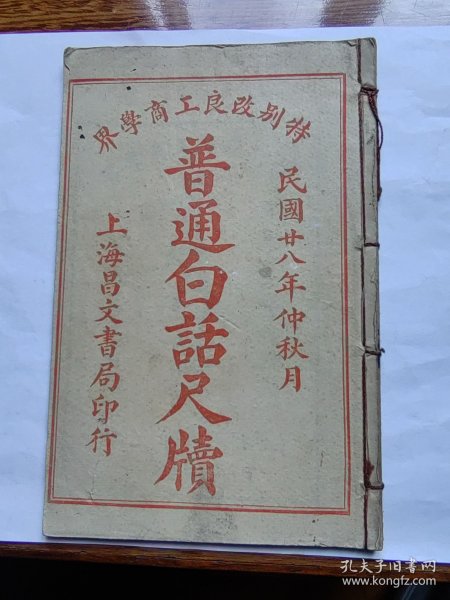 特别改良工商學界
民國廿八年仲秋月
普通白話尺牘
上海昌文書局印行
孔夫子旧书网
www.kongfz.com